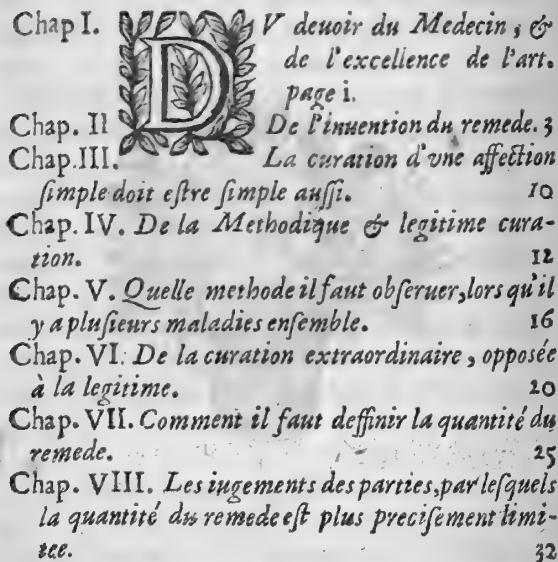 Chap I. DV deuoir du Medecin, &
de l'excellence de l'art.
page i.
Chap. II De l'inuention du remede. 3
Chap. III. La curation d'vne affection
simple doit estre simple aussi. 10
Chap. IV. De la Methodique & legitime cura-
tion. 12
Chap. V. Quelle methode il faut obseruer, lors qu'il
y a plusieurs maladies ensemble. 16
Chap. VI. De la curation extraordinaire, opposée
à la legitime. 20
Chap. VII. Comment il faut deffinir la quantité du
remede. 25
Chap. VIII. Les iugements des parties, par lesquels
la quantité du remede est plus precisement limi-
tee. 32